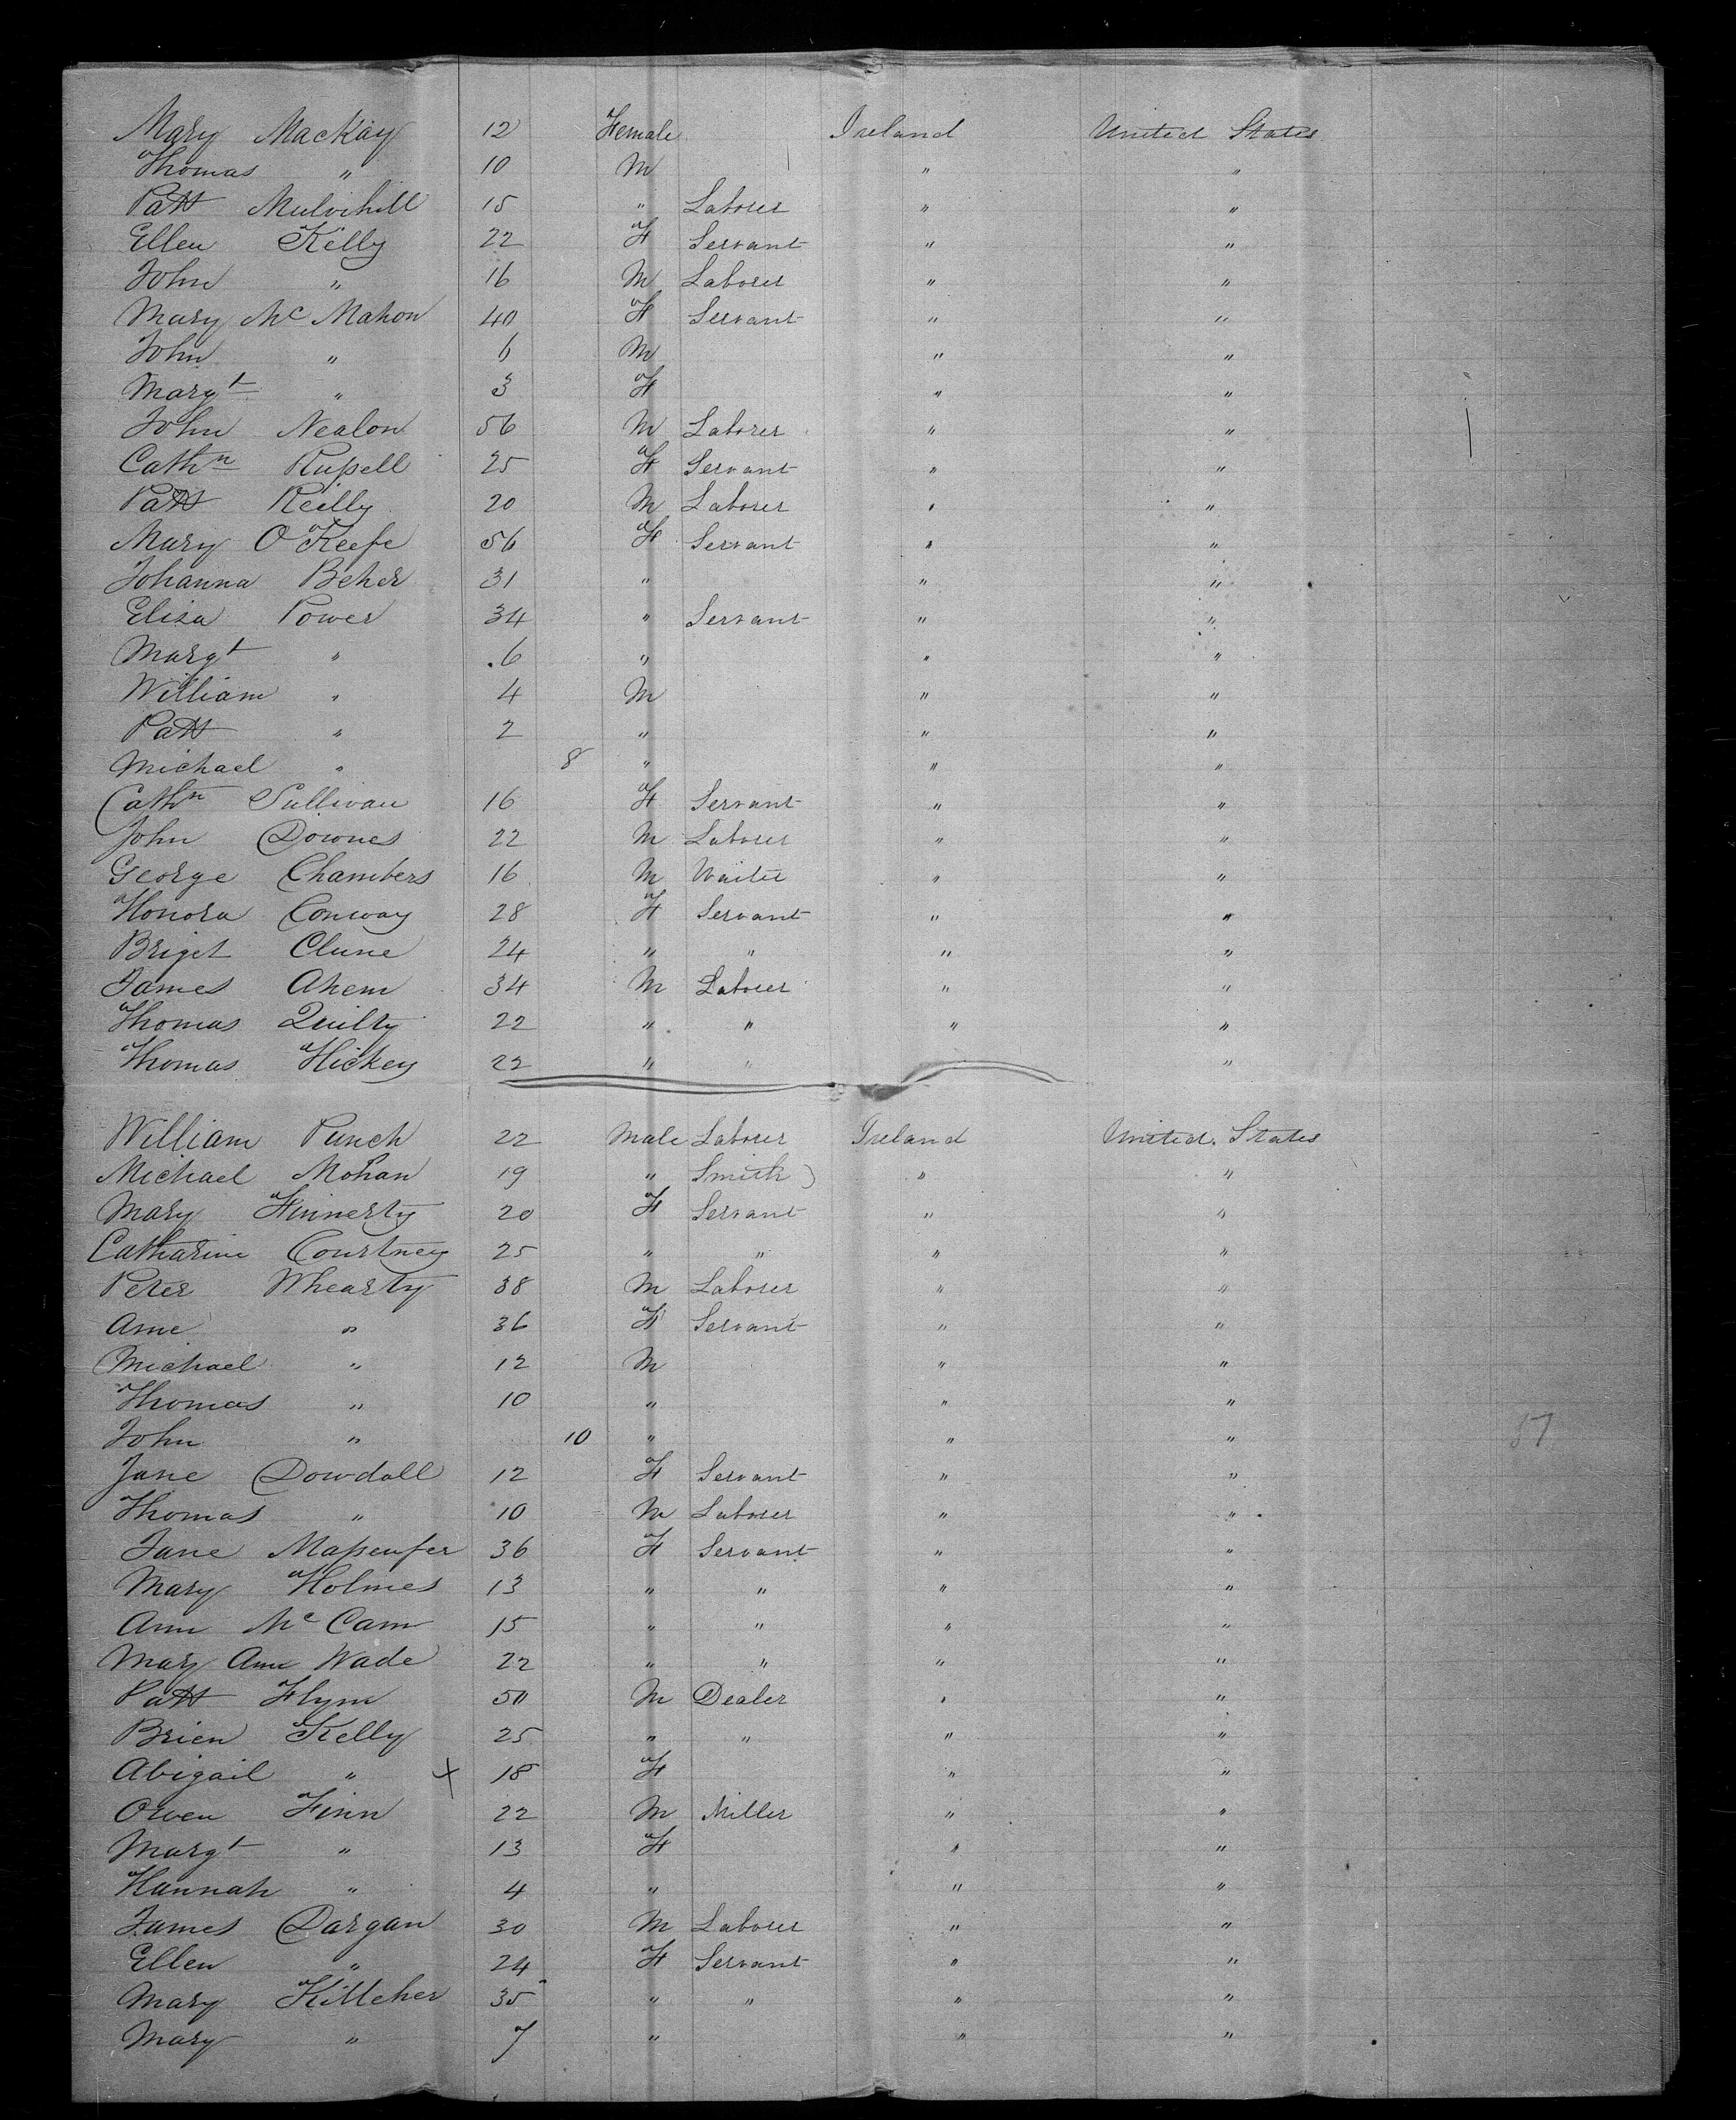 Mary MacKay 12 Female Ireland United States
Thomas " 10 M " "
Patt Mulvihill 15 " Laborer " "
Ellen Kelly 22 F Servant " "
John " 16 M Laborer " "
Mary McMahon 40 F Servant " "
John " 6 M " "
Margt " 3 F " "
John Nealon 56 M Laborer " "
Cathn Russell 25 F Servant " "
Patt Reilly 20 M Laborer " "
Mary O'Keefe 56 F Servant " "
Johanna Beher 31 " " "
Eliza Power 34 " Servant " "
Margt " 6 " " "
William " 4 M " "
Patt " 2 " " "
Michael " 8 " " "
Cathn Sullivan 16 F Servant " "
John Downes 22 M Laborer " "
George Chambers 16 M Waiter " "
Honora Conway 28 F Servant " "
Briget Clune 24 " " " "
James Ahern 34 M Laborer " "
Thomas Quilty 22 " " " "
Thomas Hickey 22 " " "
William Punch 22 Male Laborer Ireland United States
Michael Mohan 19 " Smith " "
Mary Finnerty 20 F Servant " "
Catharine Courtney 25 " " " "
Peter Whearty 38 M Laborer " "
Anne " 36 F Servant " "
Michael " 12 M " "
Thomas " 10 " " "
John " 10 " " " 57
Jane Dowdall 12 F Servant " "
Thomas " 10 M Laborer " "
Jane 36 F Servant " "
Mary Holmes 13 " " " "
Ann McCann 15 " " " "
Mary Ann Wade 22 " " " "
Patt Flynn 50 M Dealer " "
Brien Kelly 25 " " " "
Abigail " X 18 F " "
Owen Finn 22 M Miller " "
Margt " 13 F " "
Hannah " 4 " " "
James Dargan 30 M Laborer " "
Ellen " 24 F Servant " "
Mary Killeher 35 " " " "
Mary " 7 " " "